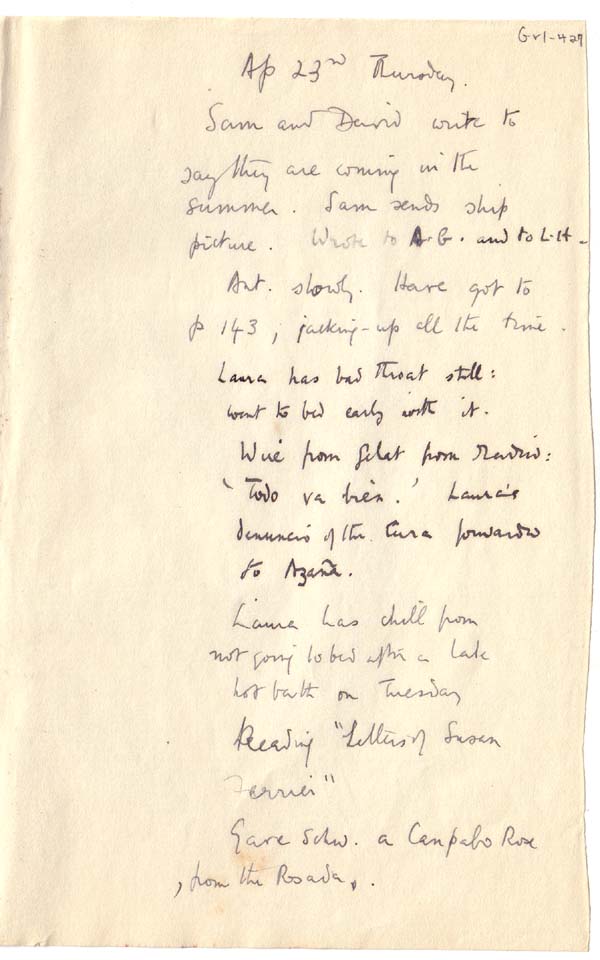 Gv1-427
Ap 23rd Thursday.
Sam and David write to
say they are coming in the
summer. Sam sends ship
picture. Wrote to A.G. and to L.H.
Ant. slowly. Have got to
p 143, jacking-up all the time.
Laura has bad throat still:
went to bed early with it.
Wire from Gelat from Madrid:
'Todo va bien.' Laura's
denuncio of the Cura forwarded
to Azaña.
Laura has chill from
not going to bed after a late
hot bath on Tuesday
Reading "Letters of Susan
Ferrier"
Gave Schw. a Canpabo Rose
, from the Rosada, .